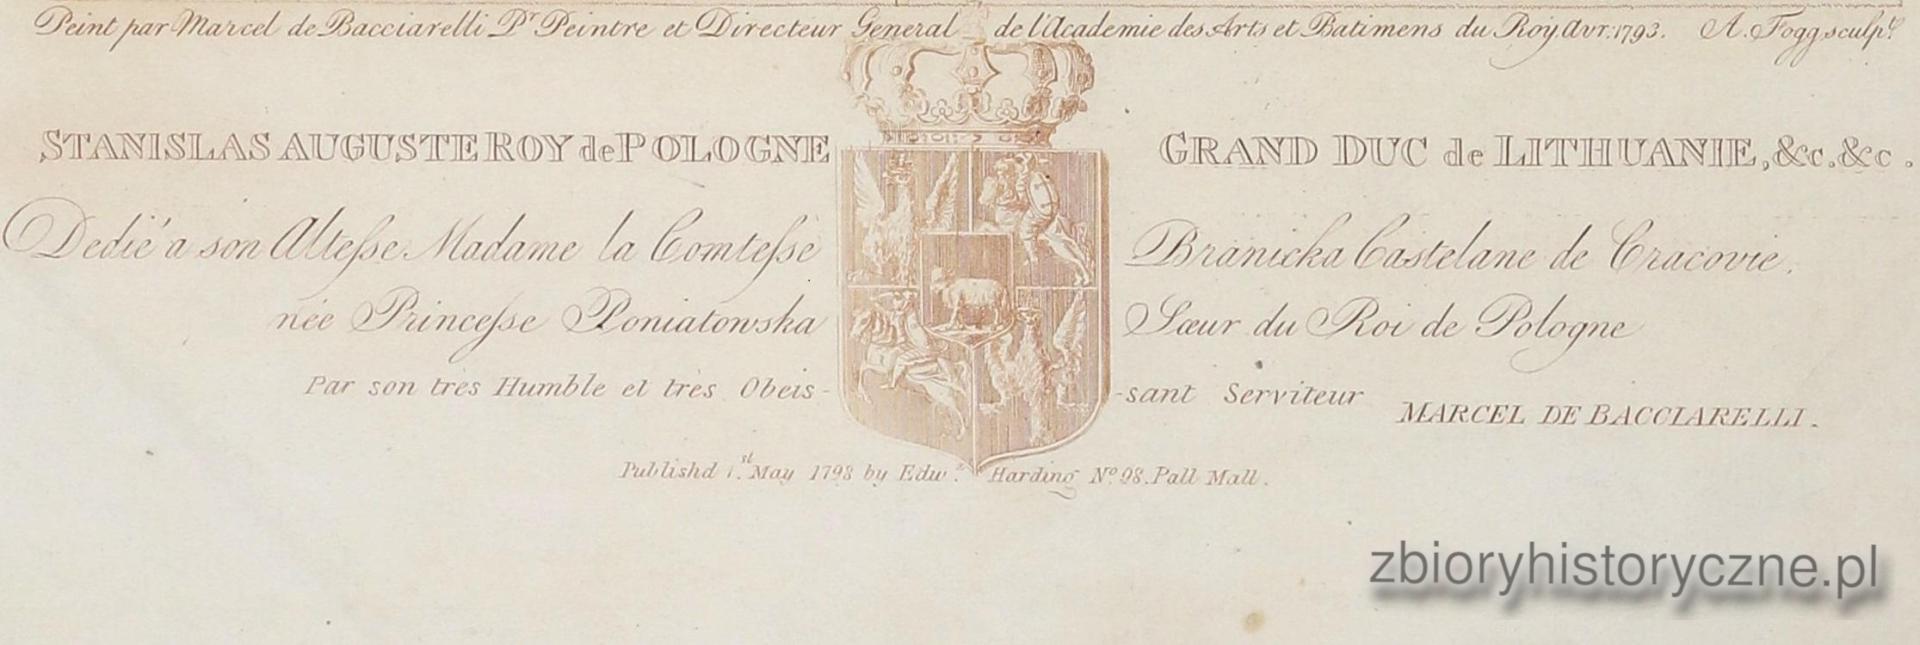 Peint par Marcel de Bacciarelli Pr Peintre et Directeur General de l'Academie des Arts et Batimens du Roy. Avr. 1793. A. Fogg sculpt.
STANISLAS AUGUSTE ROY de POLOGNE GRAND DUC de LITHUANIE, &c. &c.
Dedié a son Altesse Madame la Comtesse Branicka Castelane de Cracovie.
née Princesse Poniatowska Sœur du Roi de Pologne
Par son très Humble et très Obeis- -sant Serviteur
MARCEL DE BACCIARELLI.
Publishd 1.st May 1798 by Edwd. Harding No. 98. Pall Mall.
zbioryhistoryczne.pl